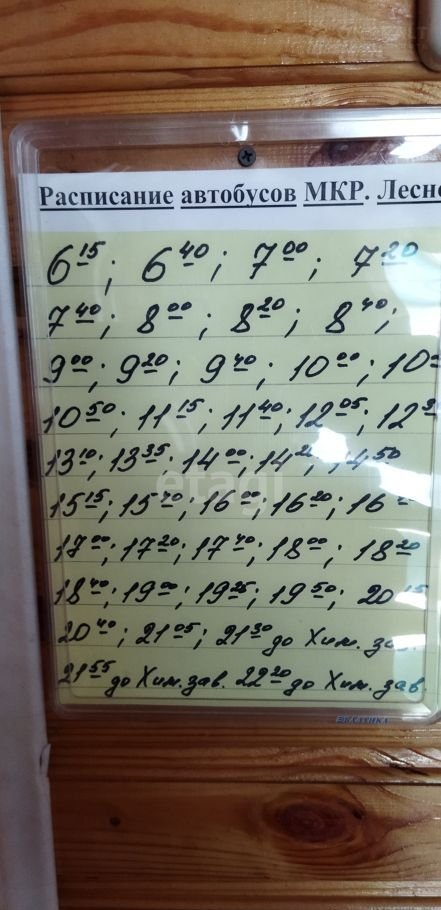 Расписание автобусов МКР. Лесно
6 15; 6 40; 7 00; 7 20
7 40; 8 00; 8 20; 8 40;
9 00; 9 20; 9 40; 10 00; 10
10 50; 11 15; 11 40; 12 05; 12
13 10; 13 35; 14 00; 14 2 ; 14 50
15 15; 15 40; 16 00; 16 20; 16
17 00; 17 20; 17 40; 18 00; 18 20
18 40; 19 00; 19 25; 19 50; 20 15
20 40; 21 05; 21 30 до Хим. зав.
21 55 до Хим. зав. 22 20 до Хим. зав.
etagi